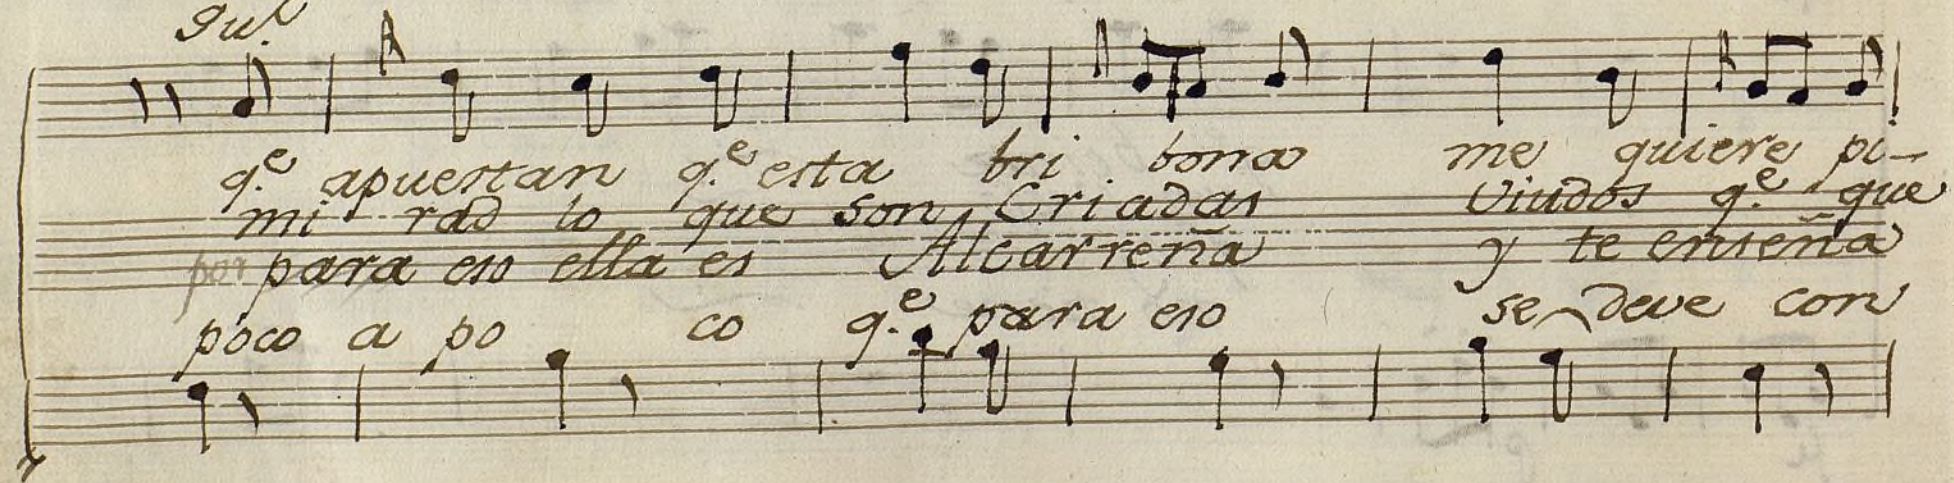 q.e apuestan q.e esta bri bona me quiere pi-
mi rad lo que son Criadas Viudos q.e que
por para eso ella es Alcarreña y te enseña
poco a po co q.e para eso se deve con